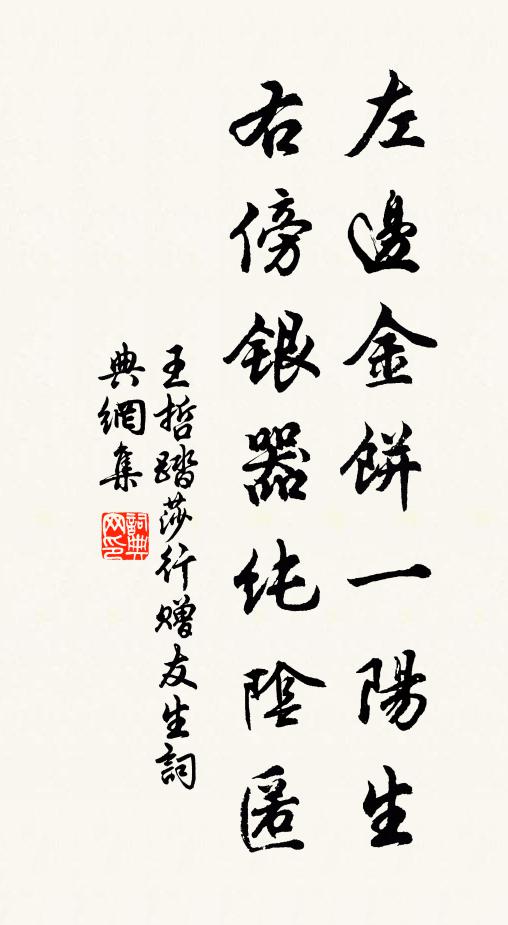 左邊金餅一陽生
右傍銀器纯陰匿
王哲踏莎行贈友生詞
典網集
詞典
网印